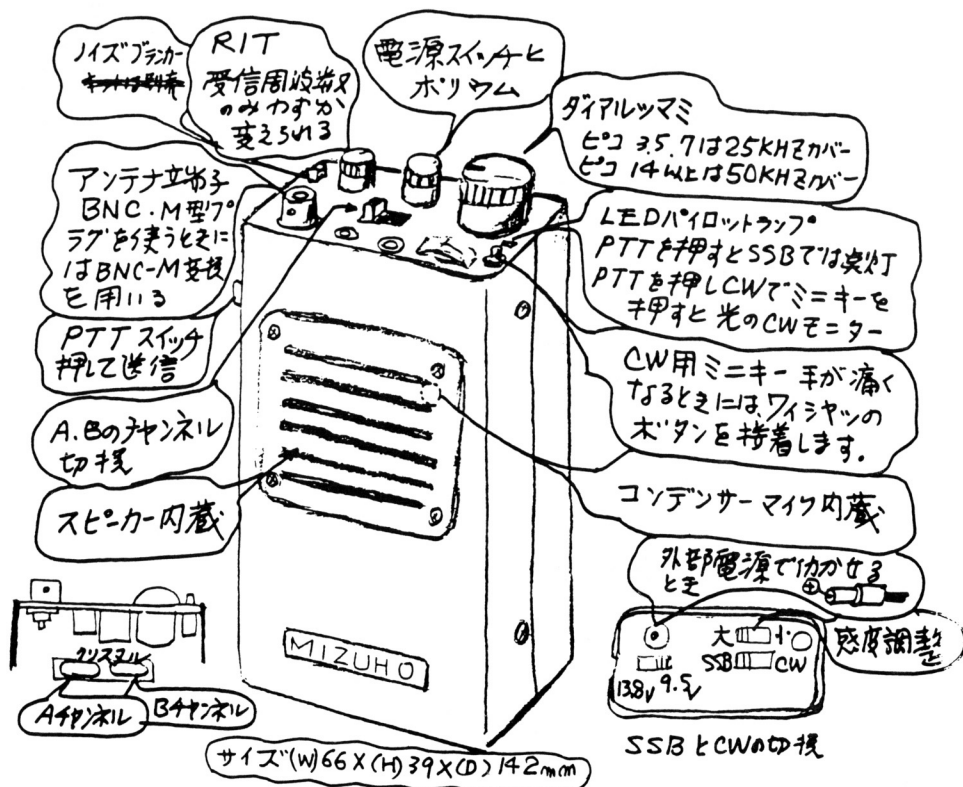 ノイズブランカー
RIT
受信周波数
のみわずか
変えられる
電源スイッチと
ボリウム
ダイアルツマミ
ピコ 3.5.7は25KHZカバー
ピコ 14以上は50KHZカバー
アンテナ立端子
BNC.M型プ
ラグを使うときに
はBNC-M変換
を用いる
LEDパイロットランプ
PTTを押すとSSBでは点灯
PTTを押しCWでミニキーを
押すと光のCWモニター
PTTスイッチ
押して送信
CW用ミニキー 手が痛く
なるときには、ワイシャツの
ボタンを接着します.
A.Bのチャンネル
切換
スピーカー内蔵
コンデンサーマイク内蔵
外部電源で仂かせる
とき
⊕
感度調整
大 小
SSB CW
13.8V 9.5V
SSBとCWの切換
クリスタル
Aチャンネル
Bチャンネル
MIZUHO
サイズ(W)66X(H)39X(D)142mm